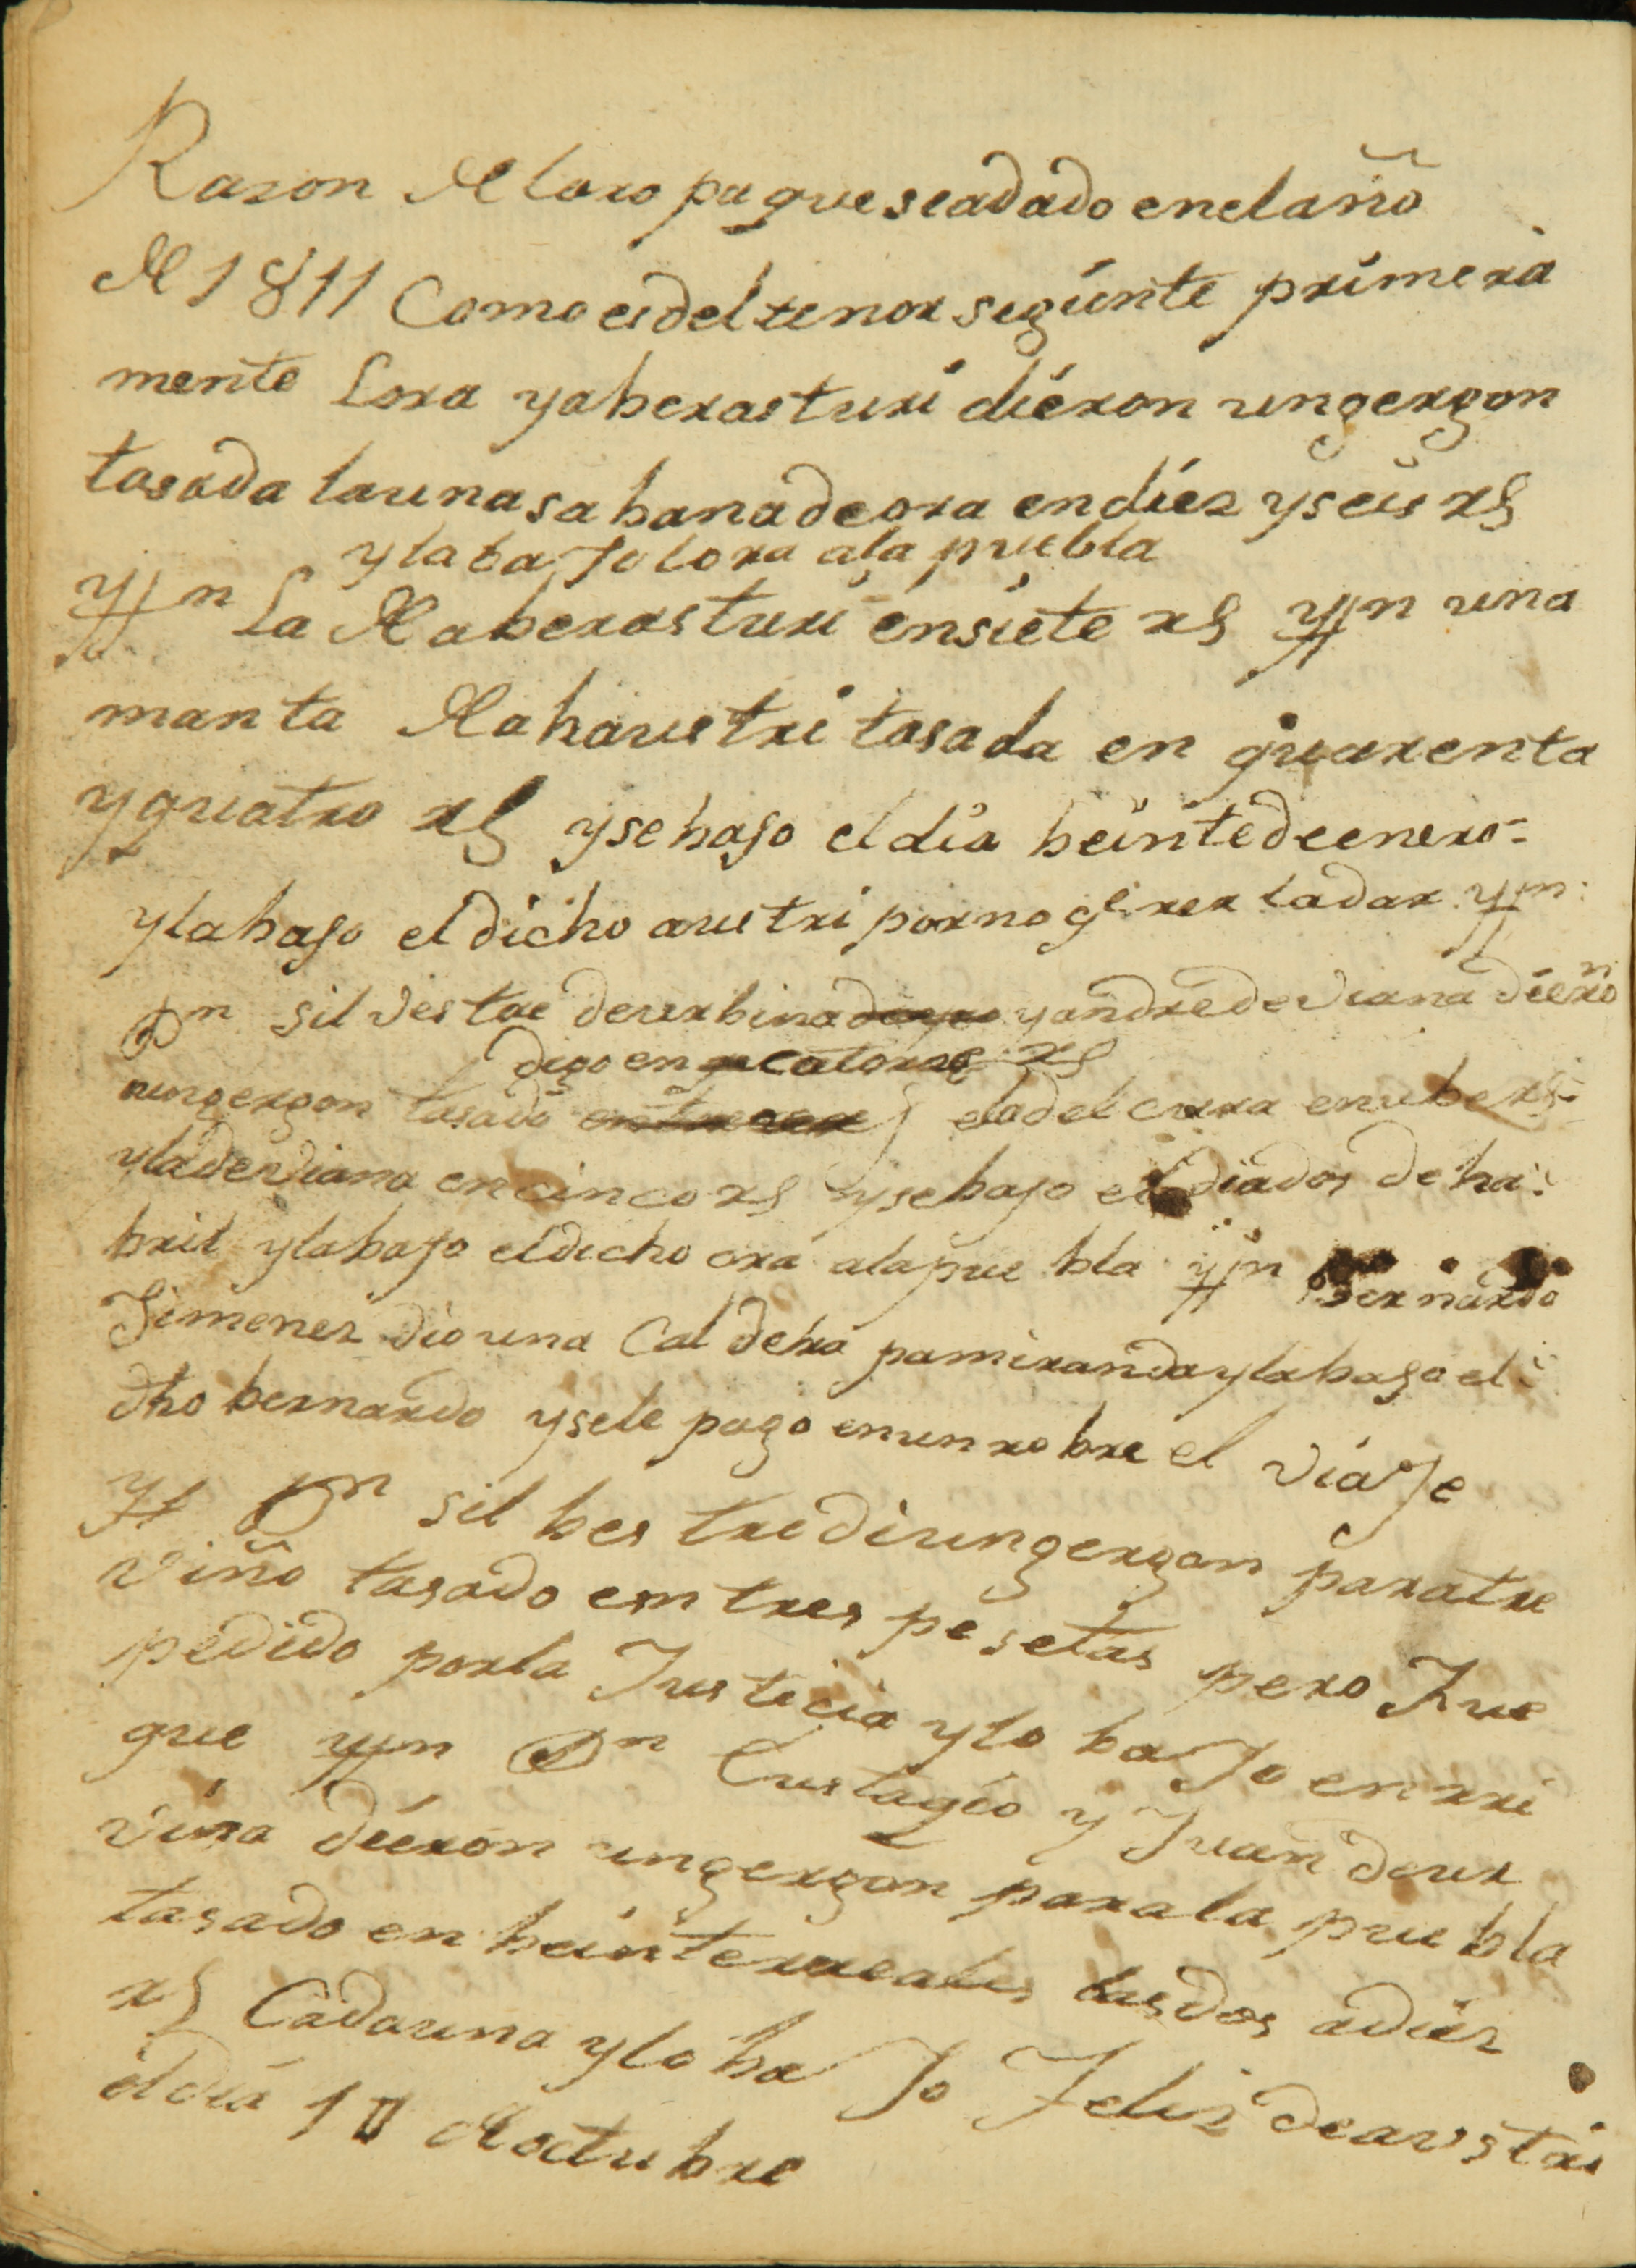 Rason de la ropa que seadado enelaño
de 1811 Como esdel tenor següinte primera
mente Lora yaberasturi dieron ungergon
tasada launasabanadeora endiez yseis rs
ylabajo lora ala puebla
Ytn La de aberasturi ensiete rs Ytn una
manta de ahaustri tasada en quarenta
yquatro rs ysebajo eldia beintedeenero
ylabajo eldicho austri porno qe rer ladar Ytn
Dn silvestre deurbina yandredeviana diero n
digo en catorse rs
ungergon tasado eladel cura enube rs
yladeviana encinco rs ysebajo el diados deha
bril ylabajo eldicho ora alapuebla Ytn Bernardo
Jimenez dio una Caldera pamirandaylabajo el
dho bernardo ysele pago enunrobre el viaje
Yt Dn silbestredi ungergon paratre
viño tasado em tres pesetas pero Fue
pedido porla Justicia ylo bajo enrri
que Ytn Dn Eustaqio y Juan deur
vina dieron ungergon parala puebla
tasado en beinterreales lasdos adiez
rs Cadauna ylo bajo Feliz deaustri
eldia de octubre